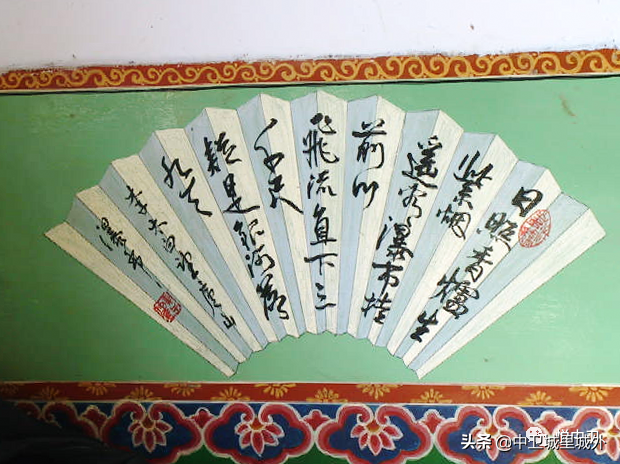 日照香爐生
紫烟
遥看瀑布挂
前川
飛流直下三
千尺
疑是銀河落
九天
李太白望廬山
瀑布
头条 @中卫城里城外